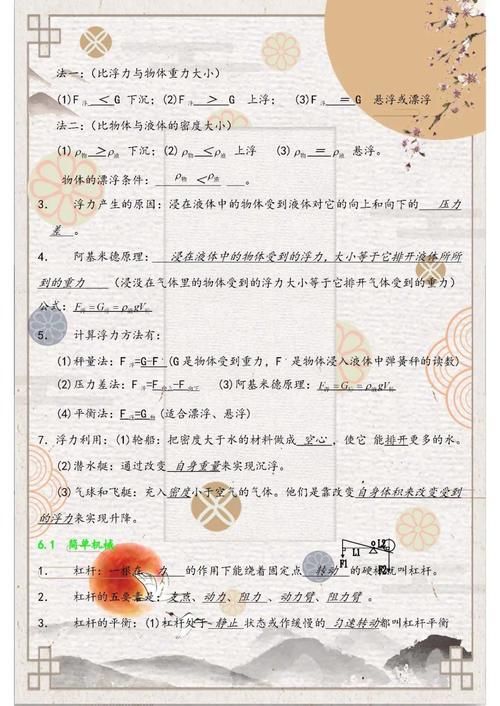 法一:(比浮力与物体重力大小)
(1)F浮 < G 下沉;(2)F浮 > G 上浮; (3)F浮 = G 悬浮或漂浮
法二:(比物体与液体的密度大小)
(1) ρ物 > ρ液 下沉;(2) ρ物 < ρ液 上浮 (3) ρ物 = ρ液 悬浮。
物体的漂浮条件: ρ物 < ρ液 。
3. 浮力产生的原因:浸在液体中的物体受到液体对它的向上和向下的 压力
差 。
4. 阿基米德原理: 浸在液体中的物体受到的浮力,大小等于它排开液体所所
到的重力 (浸没在气体里的物体受到的浮力大小等于它排开气体受到的重力)
公式:F浮=G排=ρ液gV排
5. 计算浮力方法有:
(1)秤量法:F浮=G-F'(G是物体受到重力,F'是物体浸入液体中弹簧秤的读数)
(2)压力差法:F浮=F向上-F向下 (3)阿基米德原理:F浮=G排=ρ液gV排
(4)平衡法:F浮=G物(适合漂浮、悬浮)
7. 浮力利用:(1)轮船:把密度大于水的材料做成 空心,使它 能排开更多的水。
(2)潜水艇:通过改变 自身重量来实现沉浮。
(3)气球和飞艇:充入密度小于空气的气体。他们是靠改变自身体积来改变受到
的浮力来实现升降。
6.1 简单机械
L1
L2
F1
F2
1. 杠杆:一根在 力 的作用下能绕着固定点 转动 的硬棒就叫杠杆。
2. 杠杆的五要素是:支点、动力、阻力 、动力臂、阻力臂 。
3. 杠杆的平衡:(1)杠杆处于 静止 状态或作缓慢的 匀速转动都叫杠杆平衡